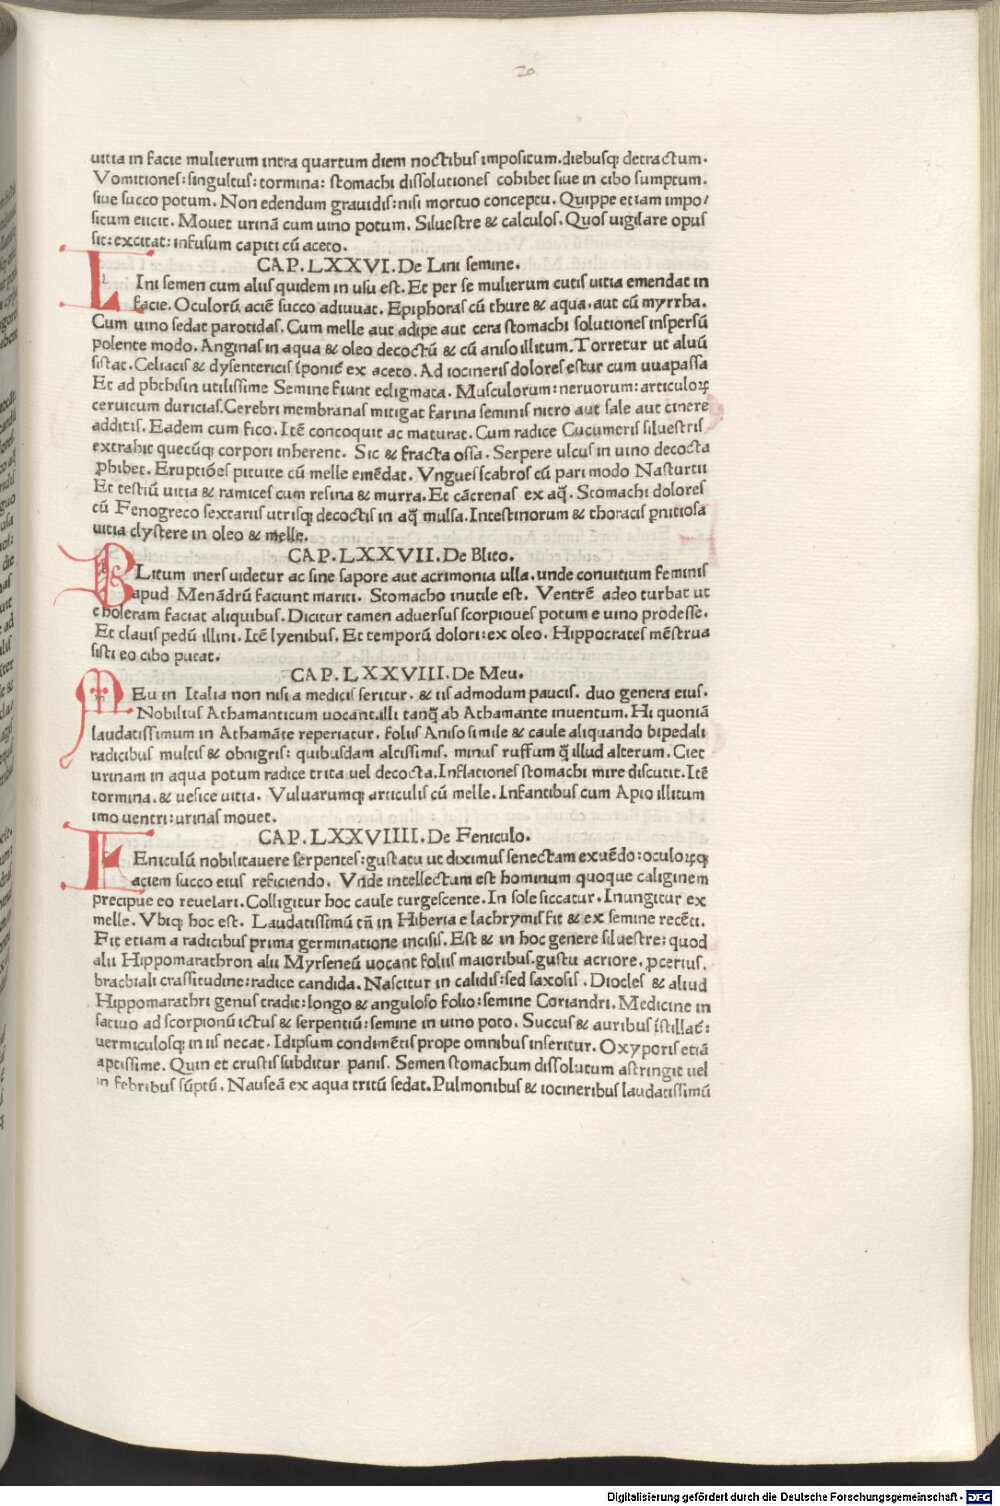 20
uitia in facie mulierum intra quartum diem noctibus impositum.diebusq; detractum.
Vomitiones:singultus:tormina: stomachi dissolutiones cohibet siue in cibo sumptum.
siue succo potum. Non edendum grauidis:nisi mortuo conceptu. Quippe etiam impo/
situm eiicit. Mouet urinā cum uino potum. Siluestre & calculos. Quos uigilare opus
sit:excitat:infusum capiti cū aceto.
CAP.LXXVI.De Lini semine.
LIni semen cum aliis quidem in usu est. Et per se mulierum cutis uitia emendat in
facie. Oculorū aciē succo adiuuat. Epiphoras cū thure & aqua.aut cū myrrha.
Cum uino sedat parotidas.Cum melle aut adipe aut cera stomachi solutiones inspersū
polente modo. Anginas in aqua & oleo decoctū & cū aniso illitum.Torretur ut aluū
sistat.Celiacis & dysentericis īponit̄ ex aceto. Ad iocineris dolores estur cum uuapassa
Et ad phthisin utilissime Semine fiunt ecligmata. Musculorum:neruorum:articuloꝝ
ceruicum duricias.Cerebri membranas mitigat farina seminis nitro aut sale aut cinere
additis. Eadem cum fico. Itē concoquit ac maturat. Cum radice Cucumeris siluestris
extrahit quecūq; corpori inherent. Sic & fracta ossa. Serpere ulcus in uino decocta
ꝓhibet. Eruptiōes pituite cū melle emēdat. Vngues scabros cū pari modo Nasturtii
Et testiū uitia & ramices cum resina & murra. Et cācrenas ex aq̄. Stomachi dolores
cū Fenogreco sextariis utrisq; decoctis in aq̄ mulsa.Intestinorum & thoracis ꝑnitiosa
uitia clystere in oleo & melle.
CAP.LXXVII.De Blito.
BLitum iners uidetur ac sine sapore aut acrimonia ulla.unde conuitium feminis
apud Menādrū faciunt mariti. Stomacho inutile est. Ventrē adeo turbat ut
choleram faciat aliquibus. Dicitur tamen aduersus scorpioues potum e uino prodesse.
Et clauis pedū illini. Itē lyenibus. Et temporū dolori:ex oleo. Hippocrates mēstrua
sisti eo cibo putat.
CAP.LXXVIII.De Meu.
MEu in Italia non nisi a medicis seritur. & iis admodum paucis. duo genera eius.
Nobilius Athamanticum uocant.illi tanq̄ ab Athamante inuentum. Hi quoniā
laudatissimum in Athamāte reperiatur. foliis Aniso simile & caule aliquando bipedali
radicibus multis & obnigris: quibusdam altissimis. minus ruffum q̄ illud alterum.Ciet
urinam in aqua potum radice trita uel decocta.Inflationes stomachi mire discutit.Itē
tormina.& uesice uitia. Vuluarumq; articulis cū melle.Infantibus cum Apio illitum
imo uentri:urinas mouet.
CAP.LXXVIIII.De Feniculo.
FEniculū nobilitauere serpentes:gustatu ut diximus senectam exuēdo:oculoꝝq;
aciem succo eius reficiendo. Vnde intellectum est hominum quoque caliginem
precipue eo reuelari.Colligitur hoc caule turgescente.In sole siccatur.Inungitur ex
melle. Vbiq; hoc est. Laudatissimū tn̄ in Hiberia e lachrymis fit & ex semine recēti.
Fit etiam a radicibus prima germinatione incisis. Est & in hoc genere siluestre:quod
alii Hippomarathron alii Myrseneū uocant foliis maioribus.gustu acriore.ꝓcerius.
brachiali crassitudine:radice candida. Nascitur in calidis:sed saxosis.Diocles & aliud
Hippomarathri genus tradit:longo & anguloso folio:semine Coriandri. Medicine in
satiuo ad scorpionū ictus & serpentiū:semine in uino poto. Succus & auribus īstillat̄:
uermiculosq; in iis necat.Idipsum condimētis prope omnibus inseritur. Oxyporis etiā
aptissime. Quin et crustis subditur panis. Semen stomachum dissolutum astringit uel
in febribus sūptū.Nauseā ex aqua tritū sedat.Pulmonibus & iocineribus laudatissimū
Digitalisierung gefördert durch die Deutsche Forschungsgemeinschaft - DFG